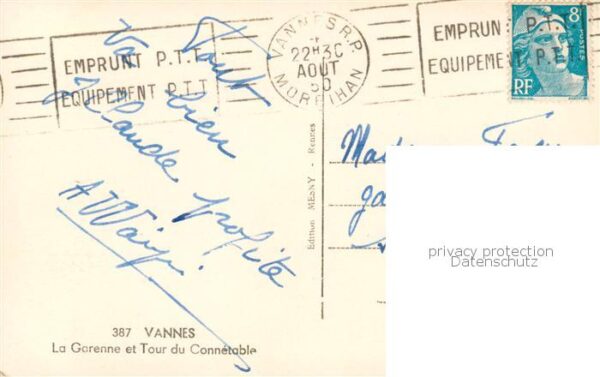 EMPRUNT P.T.T
EQUIPEMENT P.T.T
VANNES R.P.
22H30
AOUT
50
MORBIHAN
EMPRUNT P.T.
EQUIPEMENT P.T.T
8F
POSTES
RF
Tout
va bien
Claude profite
Edition MESNY - Rennes
privacy protection
Datenschutz
387 VANNES
La Garenne et Tour du Connétable